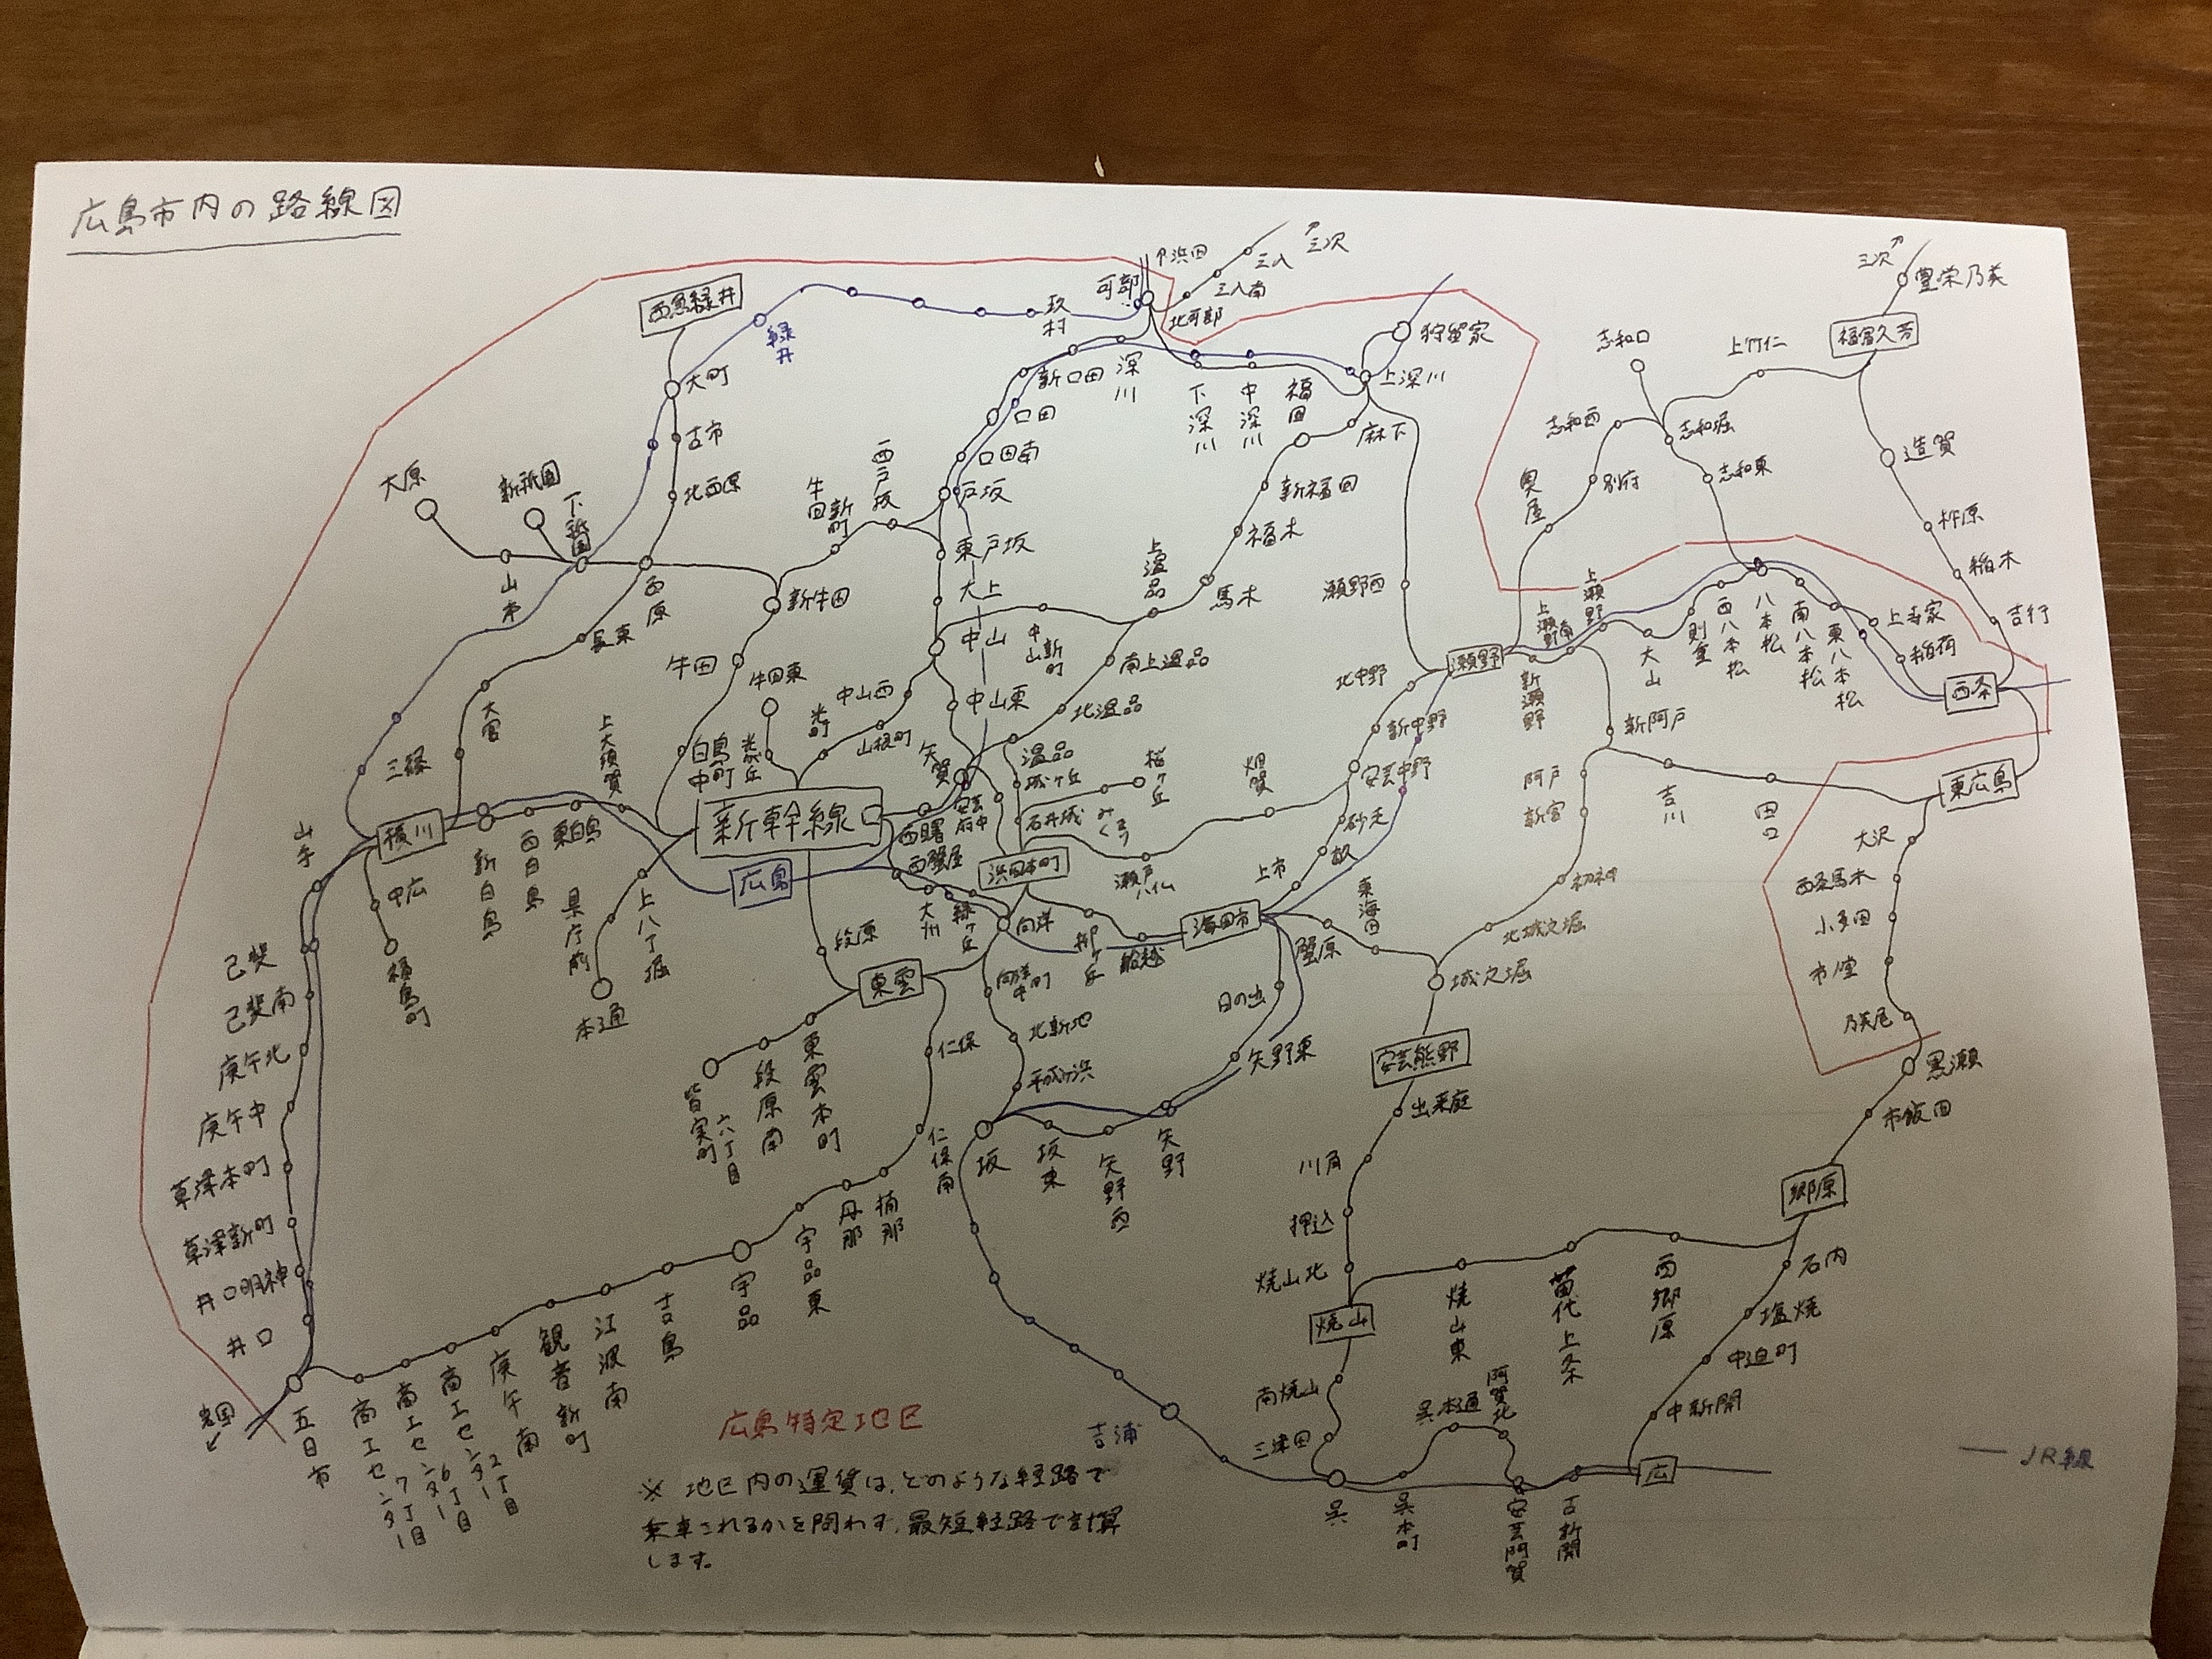 広島市内の路線図
西急緑井
緑井
可部
↑浜田
三入
↗三次
三入南
北可部
玖村
深川
新口田
口田
口田南
戸坂
西戸坂
牛田新町
東戸坂
大上
中山
中山新町
上温品
馬木
福木
新福田
福田
中深川
下深川
上深川
狩留家
麻下
瀬野西
大町
古市
北西原
西原
長束
大宮
三篠
大原
山本
新祇園
下祇園
新牛田
牛田
牛田東
白島中町
光が丘
光町
山根町
中山西
中山東
南上温品
北温品
温品
城ヶ丘
石井城
みくまり
桜ヶ丘
矢賀
安芸府中
西曙
西蟹屋
大州
緑ヶ丘
向洋
浜田本町
瀬戸ハイム
畑賀
上大須賀
東白島
西白島
新白島
横川
新幹線口
広島
山手
中広
福島町
県庁前
上八丁堀
本通
己斐
己斐南
庚午北
庚午中
草津本町
草津新町
井口明神
井口
岩国
五日市
商工センター7丁目
商工センター6丁目
商工センター2丁目
庚午南
観音新町
江波南
吉島
宇品
宇品東
丹那
楠那
仁保南
仁保
東雲
段原
東雲本町
段原南
皆実町六丁目
向洋中町
北新地
平成ヶ浜
坂
坂東
矢野西
矢野
矢野東
日の出
柳ヶ丘
船越
海田市
上市
砂走
安芸中野
新中野
北中野
瀬野
新瀬野
上瀬野南
上瀬野
大山
則重
西八本松
八本松
南八本松
東八本松
上寺家
稲荷
西条
吉行
稲木
杵原
造賀
福富久芳
豊栄乃美
三次↗
上竹仁
志和口
志和堀
志和西
志和東
別府
奥屋
新阿戸
阿戸
新宮
初神
北城之堀
城之堀
東海田
蟹原
吉川
田口
東広島
大沢
西条馬木
小多田
市堂
乃美尾
黒瀬
市飯田
郷原
石内
塩焼
中迫町
中新開
広
西郷原
苗代上条
焼山東
焼山
焼山北
押込
川角
出来庭
安芸熊野
南焼山
三津田
呉
呉本町
呉本通
阿賀北
安芸阿賀
古新開
吉浦
JR線
広島特定地区
※ 地区内の運賃は、どのような経路で
乗車されるかを問わず、最短経路で計算
します。